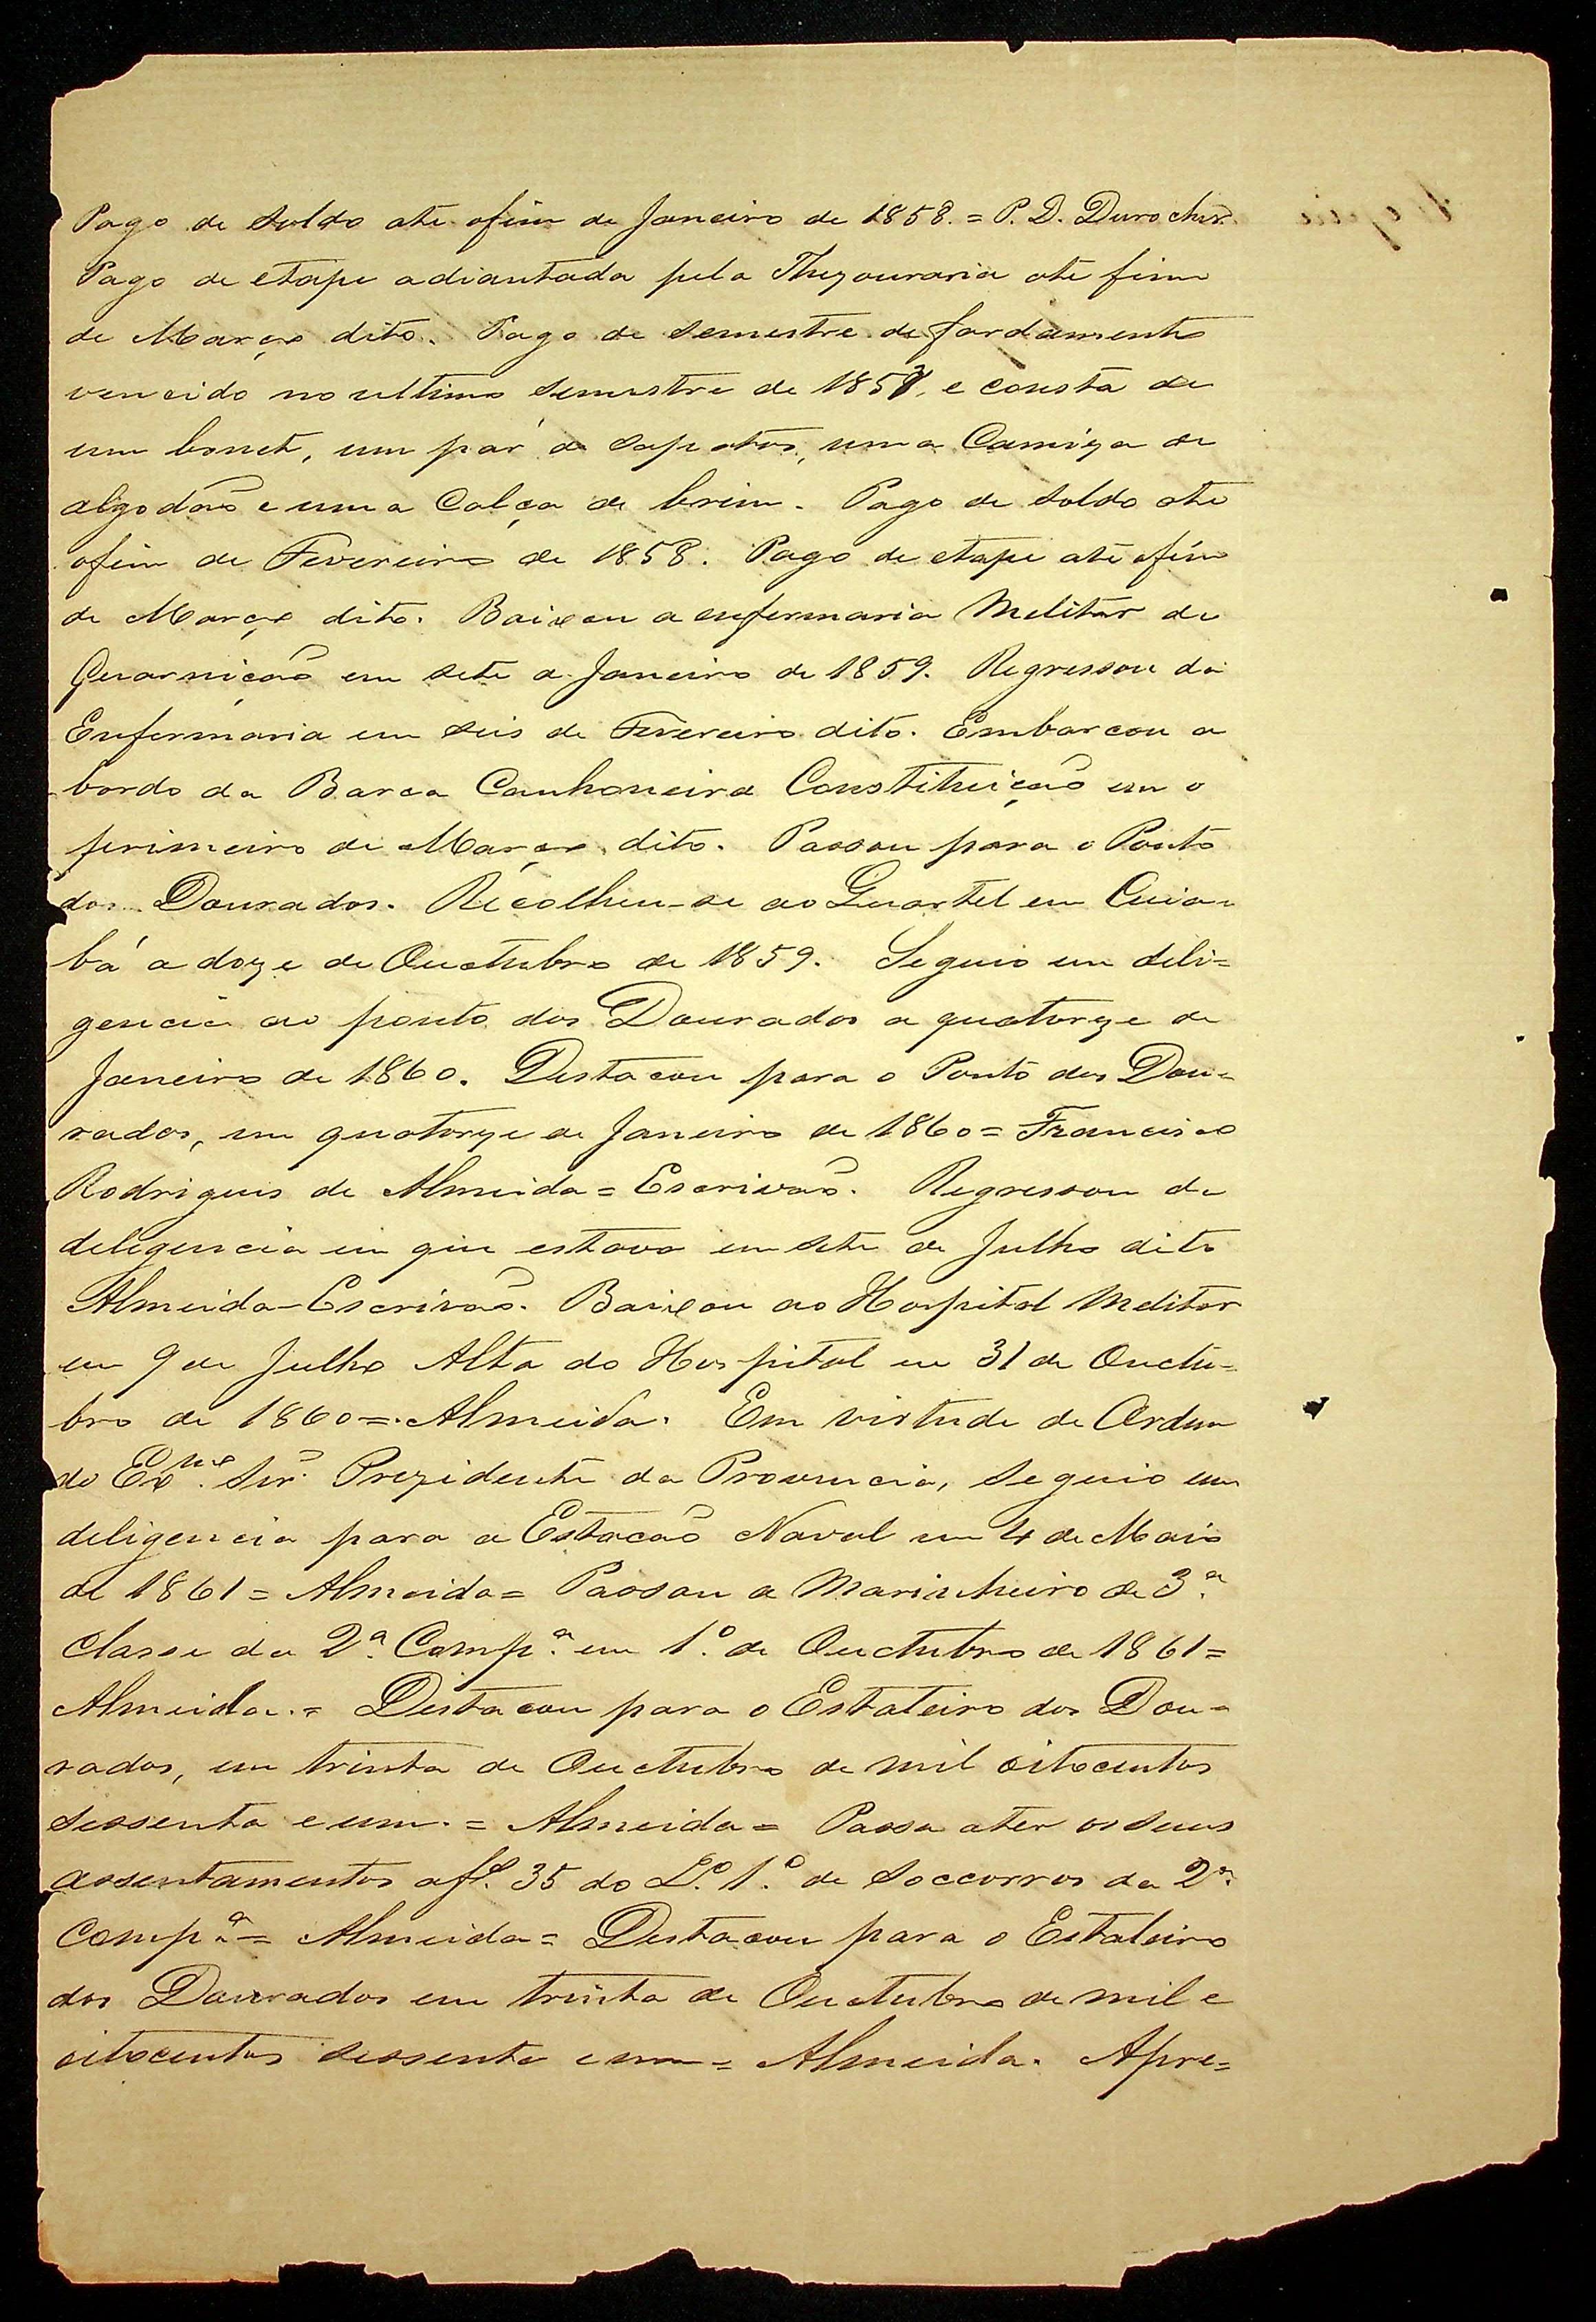 Pago de Soldo até ofim de Janeiro de 1858. = P. D. Durocher.
Pago de etape adiantada pela Thezouraria até fim
de Março dito. Pago de Semestre de fardamento
vencido no ultimo Semestre de 1857, e consta de
um bonet, um par de Sapatos, uma Camiza de
algodão e uma Calça de brim. Pago de Soldo até
ofim de Fevereiro de 1858. Pago de etape até ofim
de Março dito. Baixou a enfermaria Melitar de
Guarnição em sete de Janeiro de 1859. Regressou da
Enfermaria em seis de Fevereiro dito. Embarcou a
bordo da Barca Canhoneira Constituição em o
primeiro de Março dito. Passou para o Ponto
dos Dourados. Recolheu-se ao Quartel em Cuia-
bá a doze de Ouctubro de 1859. Seguio em deli=
gencia ao ponto dos Dourados a quatorze de
Janeiro de 1860. Destacou para o Ponto dos Dou-
rados, em quatorze de Janeiro de 1860 = Francisco
Rodrigues de Almeida = Escrivão. Regressou da
deligencia em que estava em sete de Julho dito
Almeida-Escrivão. Baixou ao Hospital Melitar
em 9 de Julho Alta do Hospital em 31 de Ouctu-
bro de 1860 =. Almeida. Em virtude de Ordem
do Exmo. Snr. Prezidente da Provincia, Seguio em
deligencia para a Estacão Naval em 4 de Maio
de 1861 = Almeida = Passou a Marinheiro de 3.ª
Classe da 2.ª Comp.ª em 1.º de Ouctubro de 1861 =
Almeida. = Destacou para o Estaleiro dos Dou-
rados, em trinta de Ouctubro de mil oitocentos
sessenta e um. = Almeida = Passa ater os seus
assentamentos afl. 35 do L.º 1.º de Soccorros da 2.ª
Comp.ª = Almeida = Destacou para o Estaleiro
dos Dourados em trinta de Ouctubro de mil e
oitocentos sessenta e um = Almeida. Apre=